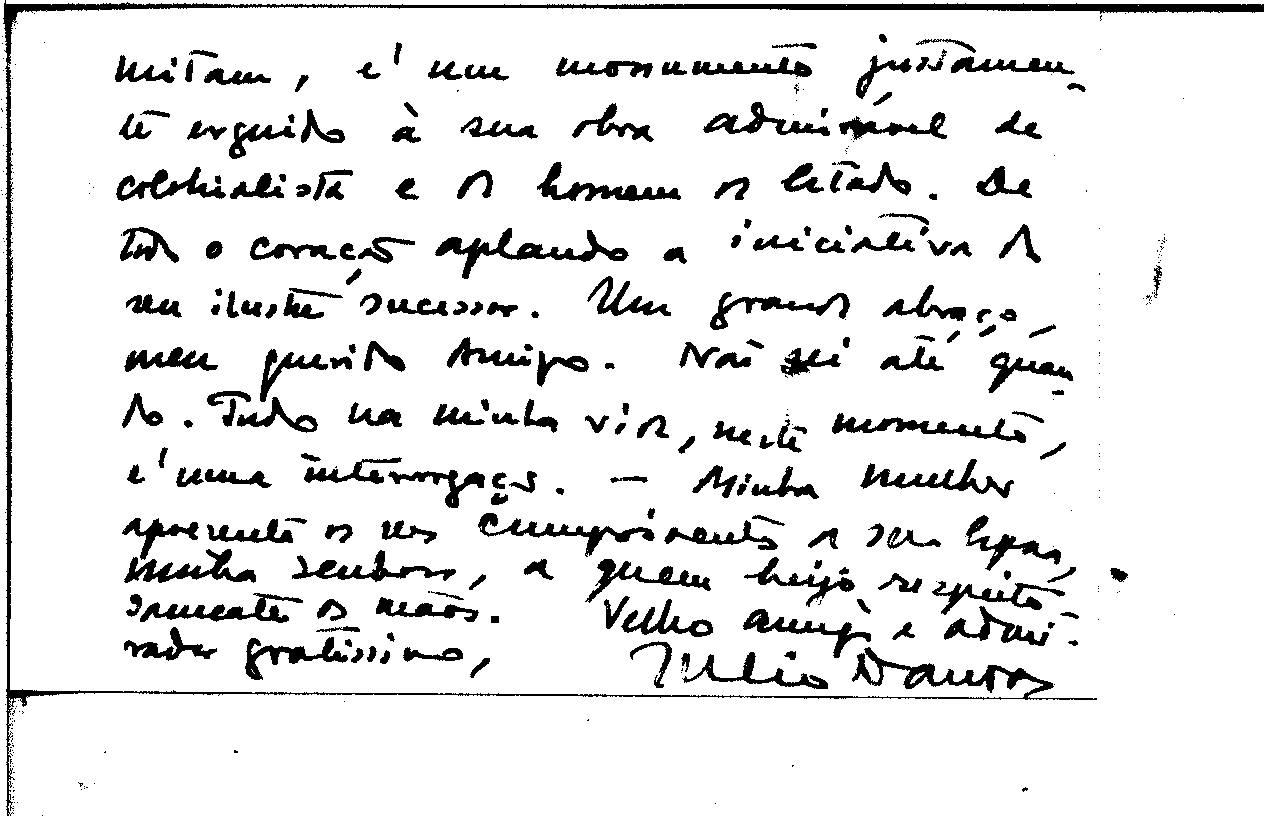 mitam, é um monumento justamen-
te erguido à sua obra admirável de
colonialista e de homem de Estado. De
todo o coração aplaudo a iniciativa do
seu ilustre sucessor. Um grande abraço,
meu querido Amigo. Não sei até quan-
do. Tudo na minha vida, neste momento,
é uma interrogação. — Minha mulher
apresenta os seus cumprimentos a sua Espôsa,
minha Senhora, a quem beijo respeito-
samente as mãos. Velho amigo e admi-
rador gratíssimo,
Julio Dantas